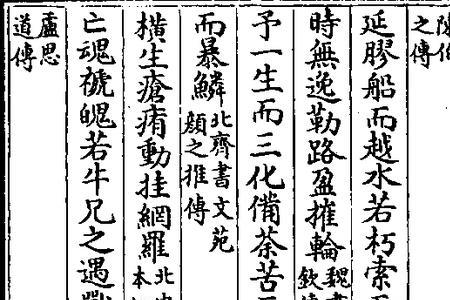 陳伯之傳
延膠船而越水若朽索
時無逸勒路盈摧輪魏
予一生而三化備荼苦
而暴鱗北齊書文苑顏之推傳
橫生瘡痏動挂網羅北
亡魂褫魄若牛兄之遇
盧思道傳